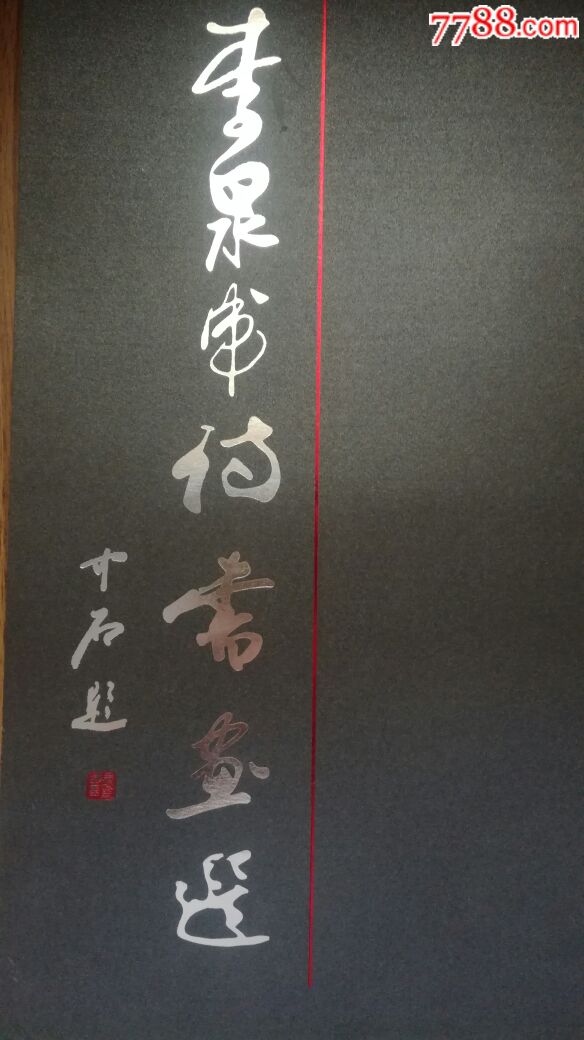 7788.com
李泉军诗书画选
介石题